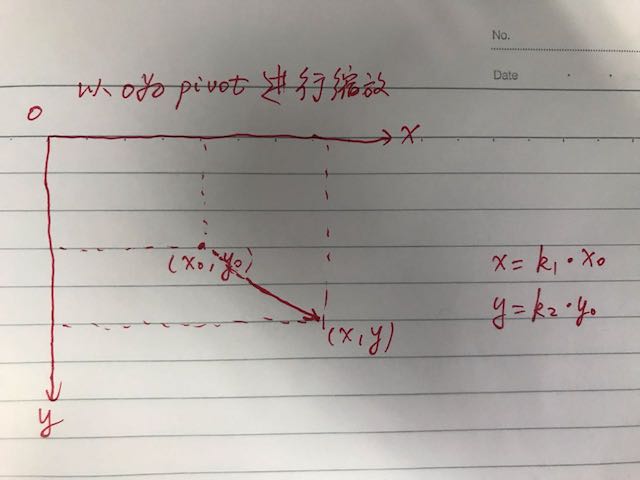 No.
Date
以o为pivot进行缩放
o
x
(x₀, y₀)
x = k₁ · x₀
y = k₂ · y₀
(x, y)
y